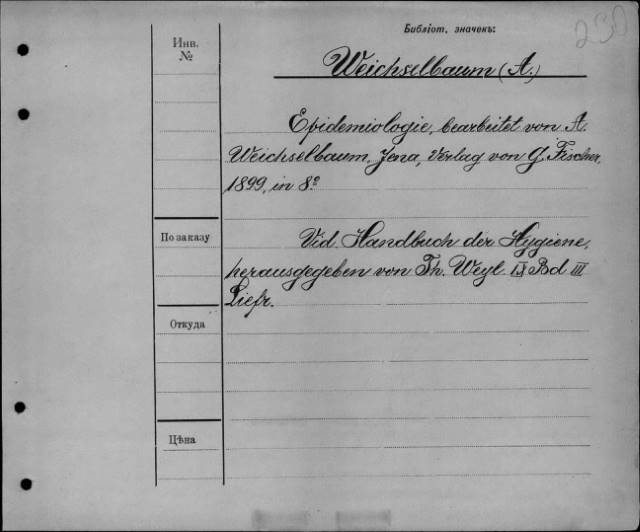 Библіот. значокъ:
230
Инв.
№
Weichselbaum (A.)
Epidemiologie, bearbeitet von A.
Weichselbaum, Jena, Verlag von G. Fischer,
1899, in 8º
По заказу
Vid. Handbuch der Hygiene,
herausgegeben von Th. Weyl. IX Bd III
Liefr.
Откуда
Цѣна